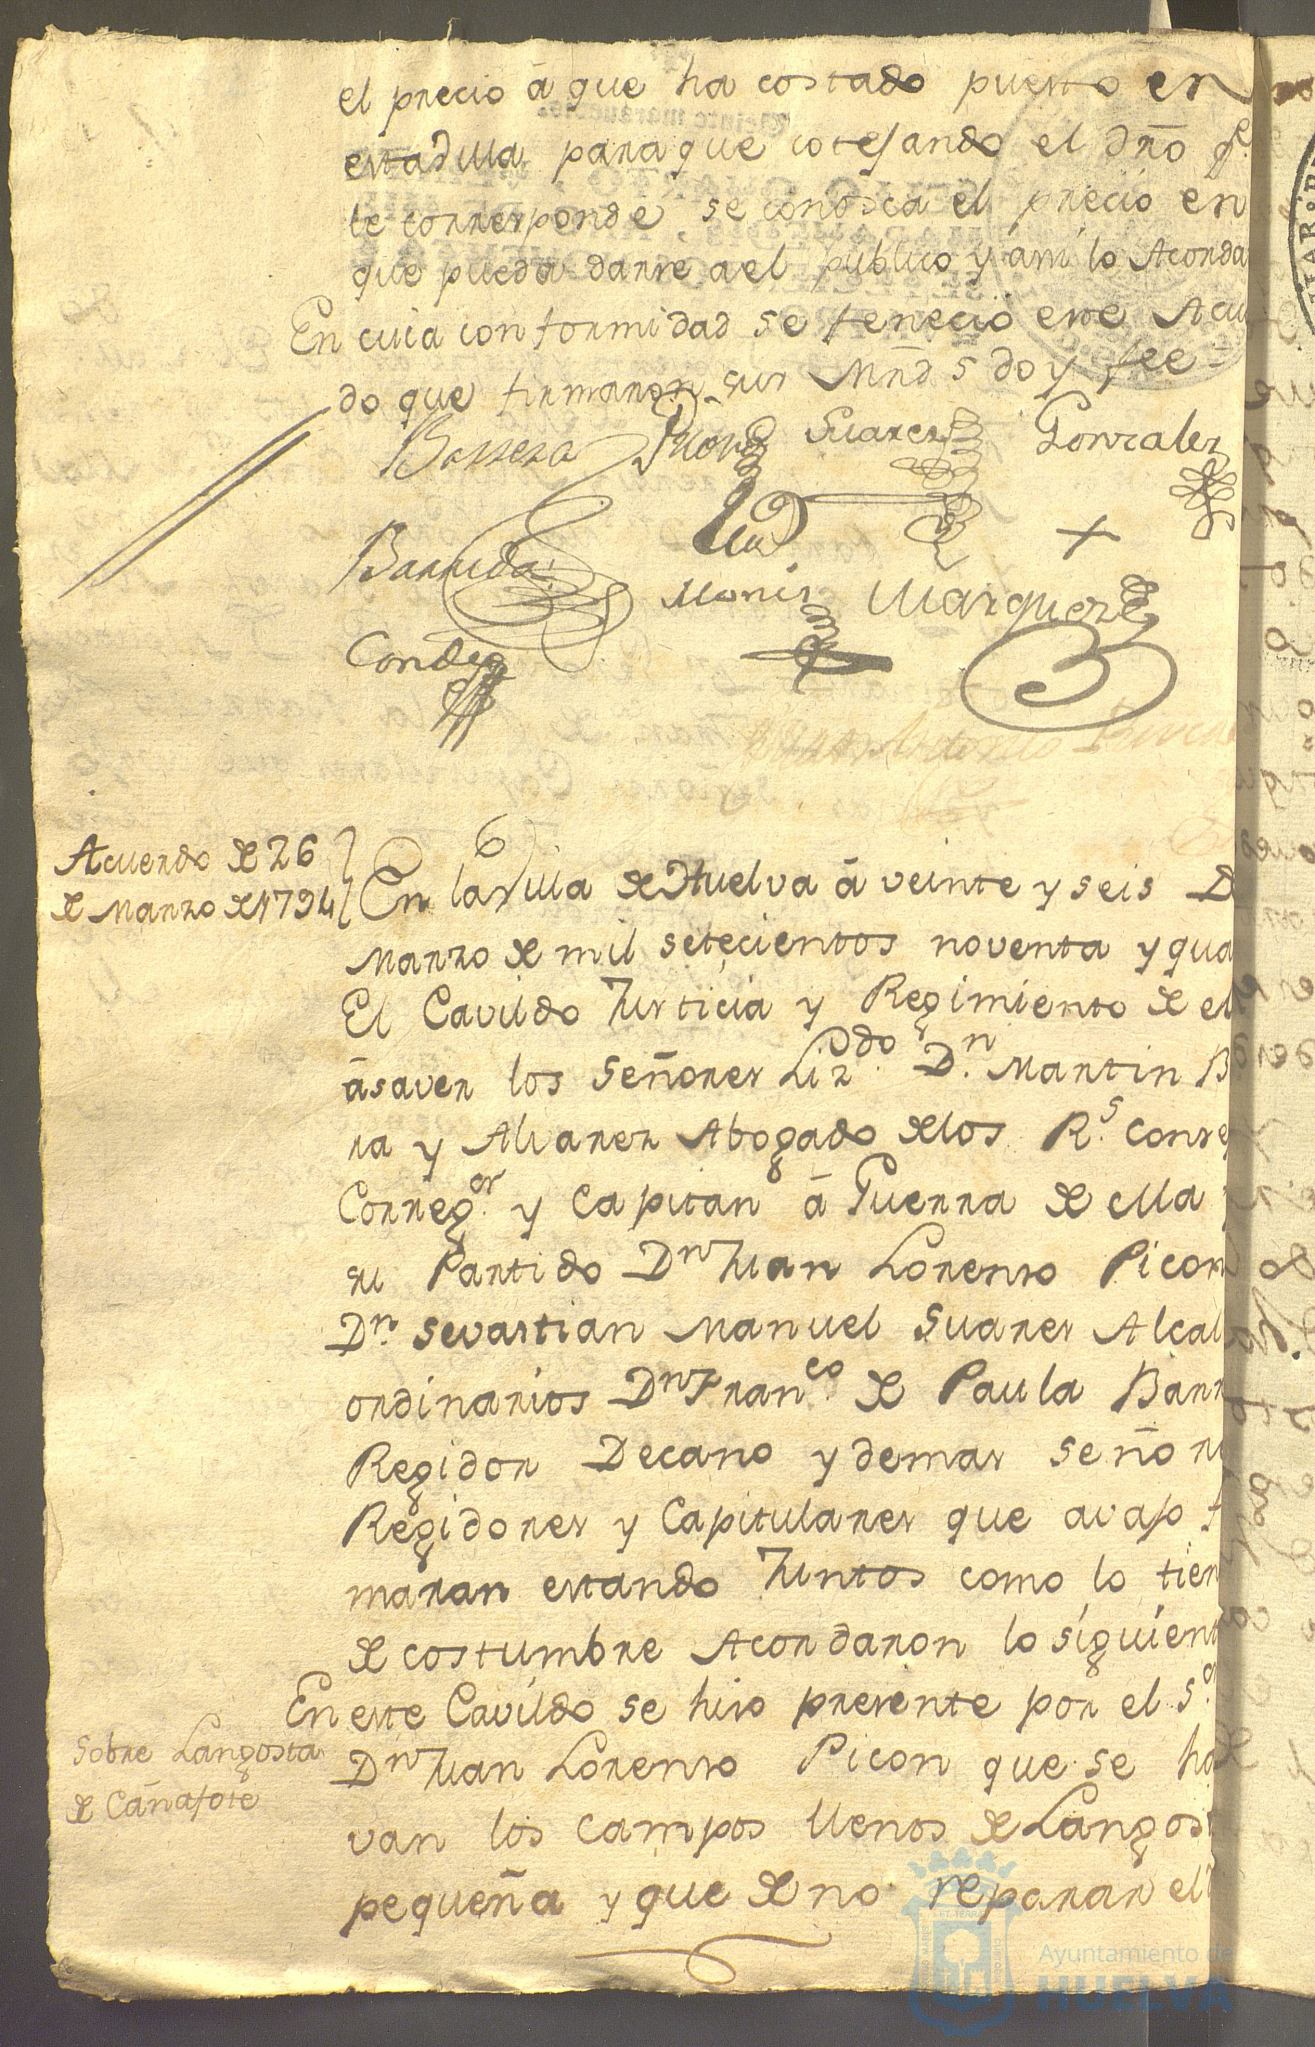 el precio â que ha costado puesto en
esta Villa para que cotejando el dr̃o q.e
le corresponde se conosca el precio en
que pueda darse ael publico y ási lo Acorda
En cuia conformidad se feneció este Acu
do que firmaron sus Mrd̃s doy fee =
Barrera Picon Suarez Gonzalez
Barreda Monis Marquez
Conde
Acuerdo de 26
de Marzo de 1794
En la Villa de Huelva â veinte y seis D
Marzo de mil setecientos noventa y qua
El Cavildo Justicia y Regimiento de el
âsaver los Señores Liz.do D.n Martin B
ra y Alvarez Abogado delos R.s Conse
Correg.or y Capitan â Guerra de ella
su Partido D.n Juan Lorenso Picon
D.n Sevastian Manuel Suares Alcal
ordinarios D.n Fran.co de Paula Barr
Regidor Decano y demas Seño
Regidores y Capitulares que avajo f
maran estando Juntos como lo tien
de costumbre Acordaron lo siguient
En este Cavildo se hiso presente por el S.or
Sobre Langosta
de Cañafote
D.n Juan Lorenso Picon que se ha
van los campos llenos de Langost
pequeña y que de no reparar el
Ayuntamiento de
HUELVA